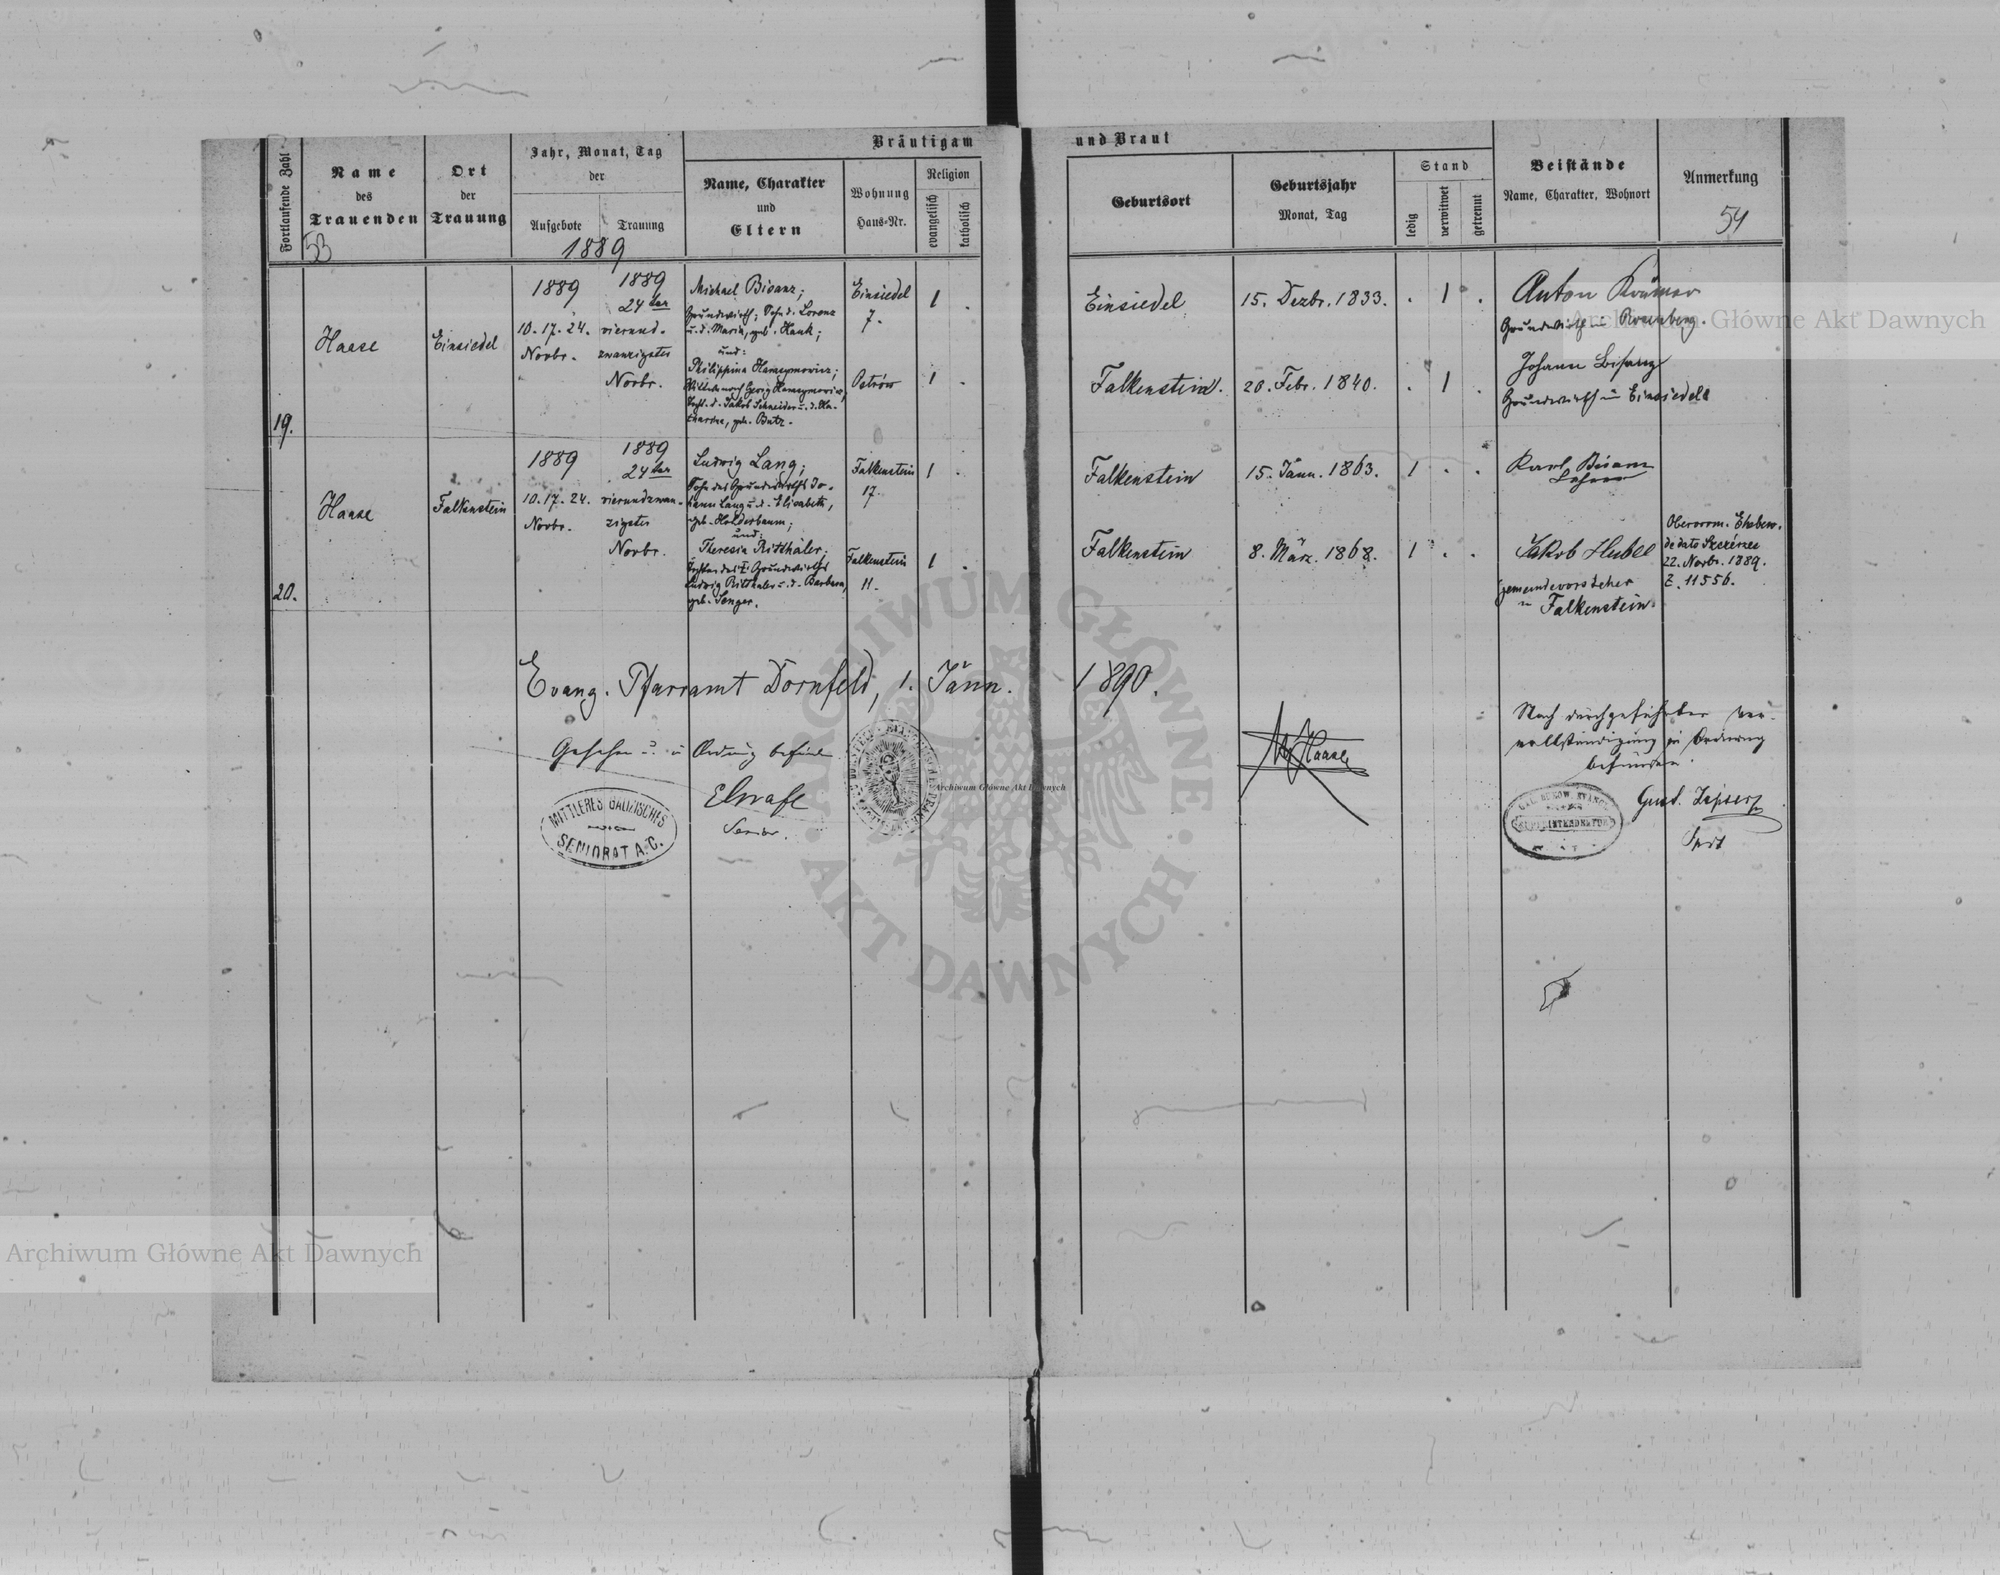 Bräutigam und Braut
Fortlaufende Zahl
Name
des
Trauenden
Ort
der
Trauung
Jahr, Monat, Tag
der
Aufgebote
Trauung
Name, Charakter
und
Eltern
Wohnung
Haus-Nr.
Religion
evangelisch
katholisch
Geburtsort
Geburtsjahr
Monat, Tag
Stand
ledig
verwitwet
getrennt
Beistände
Name, Charakter, Wohnort
Anmerkung
53
1889
54
19.
Haase
Einsiedel
1889
10. 17. 24.
Novbr.
1889
24ter
vierund-
zwanzigster
Novbr.
Michael Bisanz;
Grundwirth; Sohn d. Lorenz
u. d. Maria, geb. Hauk;
und:
Philippina Harasymowicz;
Witwe nach Georg Harasymowicz,
Tocht. d. Jakob Schneider u. d. Ka-
tharina, geb. Butz.
Einsiedel
7.
Ostrów
1 .
1 .
Einsiedel
Falkenstein.
15. Dezbr. 1833.
20. Febr. 1840.
. 1 .
. 1 .
Anton Krämer
Grundwirth in Rosenberg.
Johann Bisanz
Grundwirth in Einsiedel
20.
Haase
Falkenstein
1889
10. 17. 24.
Novbr.
1889
24ter
vierundzwan-
zigster
Novbr.
Ludwig Lang;
Sohn des Grundwirths Jo-
hann Lang u. d. Elisabeth,
geb. Holderbaum;
und:
Theresia Ritthaler;
Tochter des Grundwirths
Ludwig Ritthaler u. d. Barbara,
geb. Senger.
Falkenstein
17.
Falkenstein
11.
1 .
1 .
Falkenstein
Falkenstein
15. Jänn. 1863.
8. März. 1868.
1 . .
1 . .
Karl Bisanz
Lehrer
Jakob Hubel
Gemeindevorsteher
in Falkenstein.
Obervorm. Ehebew.
de dato Szczérzec
22. Novbr. 1889.
Z. 11556.
Evang. Pfarramt Dornfeld, 1. Jänn. 1890.
Haase
Gesehen u. in Ordnung befunden
Senior.
MITTLERES GALIZISCHES
SENIORAT A. C.
Nach durchgeführter Ver-
vollständigung in Ordnung
befunden.
Supdt
Archiwum Główne Akt Dawnych
ARCHIWUM GŁÓWNE
AKT DAWNYCH
Archiwum Główne Akt Dawnych
Archiwum Główne Akt Dawnych